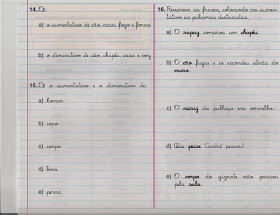 14. Dê
a) o aumentativo de cão, casa, fogo e forno.
b) o diminutivo de cão, chapéu, casa e
15. Dê o aumentativo e o diminutivo de
a) homem
b) copo
c) corpo
d) boca
e) perna
16. Reescreva as frases, colocando no aumen-
tativo as palavras destacadas.
a) O rapaz comprou um chapéu.
b) O cão fugiu e se escondeu atrás do
muro.
c) O nariz do palhaço era vermelho.
d) Que peixe André pescou!
e) O corpo do gigante não passou
pela sala.